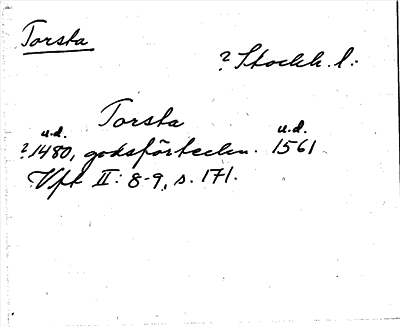 Torsta
? Stockh. l:
Torsta
u.d. u.d.
? 1480, godsförteckn. 1561
Vft II: 8-9, s. 171.